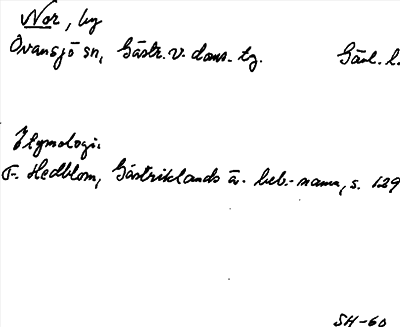 Nor, by
Ovansjö sn, Gästr. v. doms. tg. Gävl. l.
Etymologi:
F. Hedblom, Gästriklands ä. beb.-namn, s. 129
SH-60